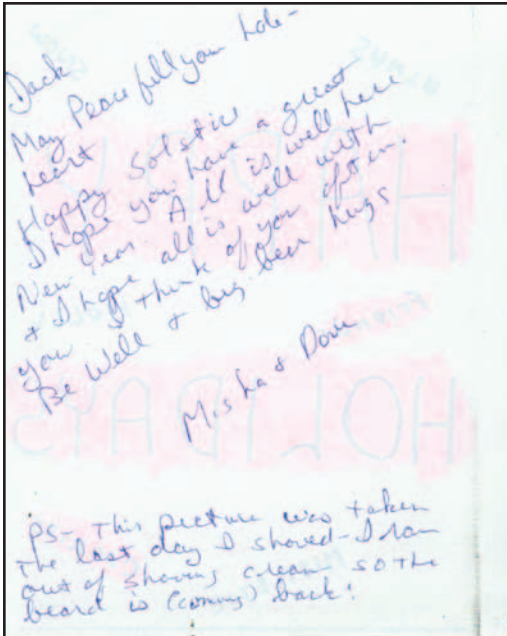 May Peace fill your hole-
heart
Happy Solstice
I hope you have a great
New Year All is well here
+ I hope all is well with
you I think of you often.
Be Well + big bear hugs
Misha + Dove
HOLIDAYS
PS- This picture was taken
the last day I shaved - I ran
out of shaving cream so the
beard is (coming) back!